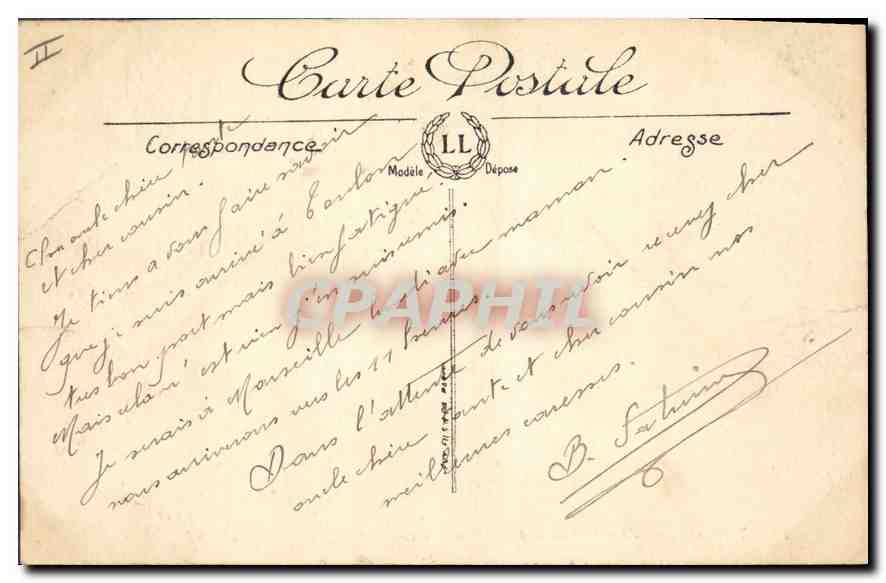 II
Carte Postale
Correspondance
LL
Modèle Déposé
Adresse
Cher oncle chère tante
et cher cousin.
Je tiens a vous faire savoir
que je suis arrivé à Toulon
très bon port mais bien fatigué,
Mais cela n'est rien j'en suis remis.
Je serais à Marseille lundi avec maman.
nous arriverons vers les 11 heures.
Dans l'attente de vous revoir recevez cher
oncle chère tante et cher cousin nos
meilleures caresses.
B.
CPAPHIL